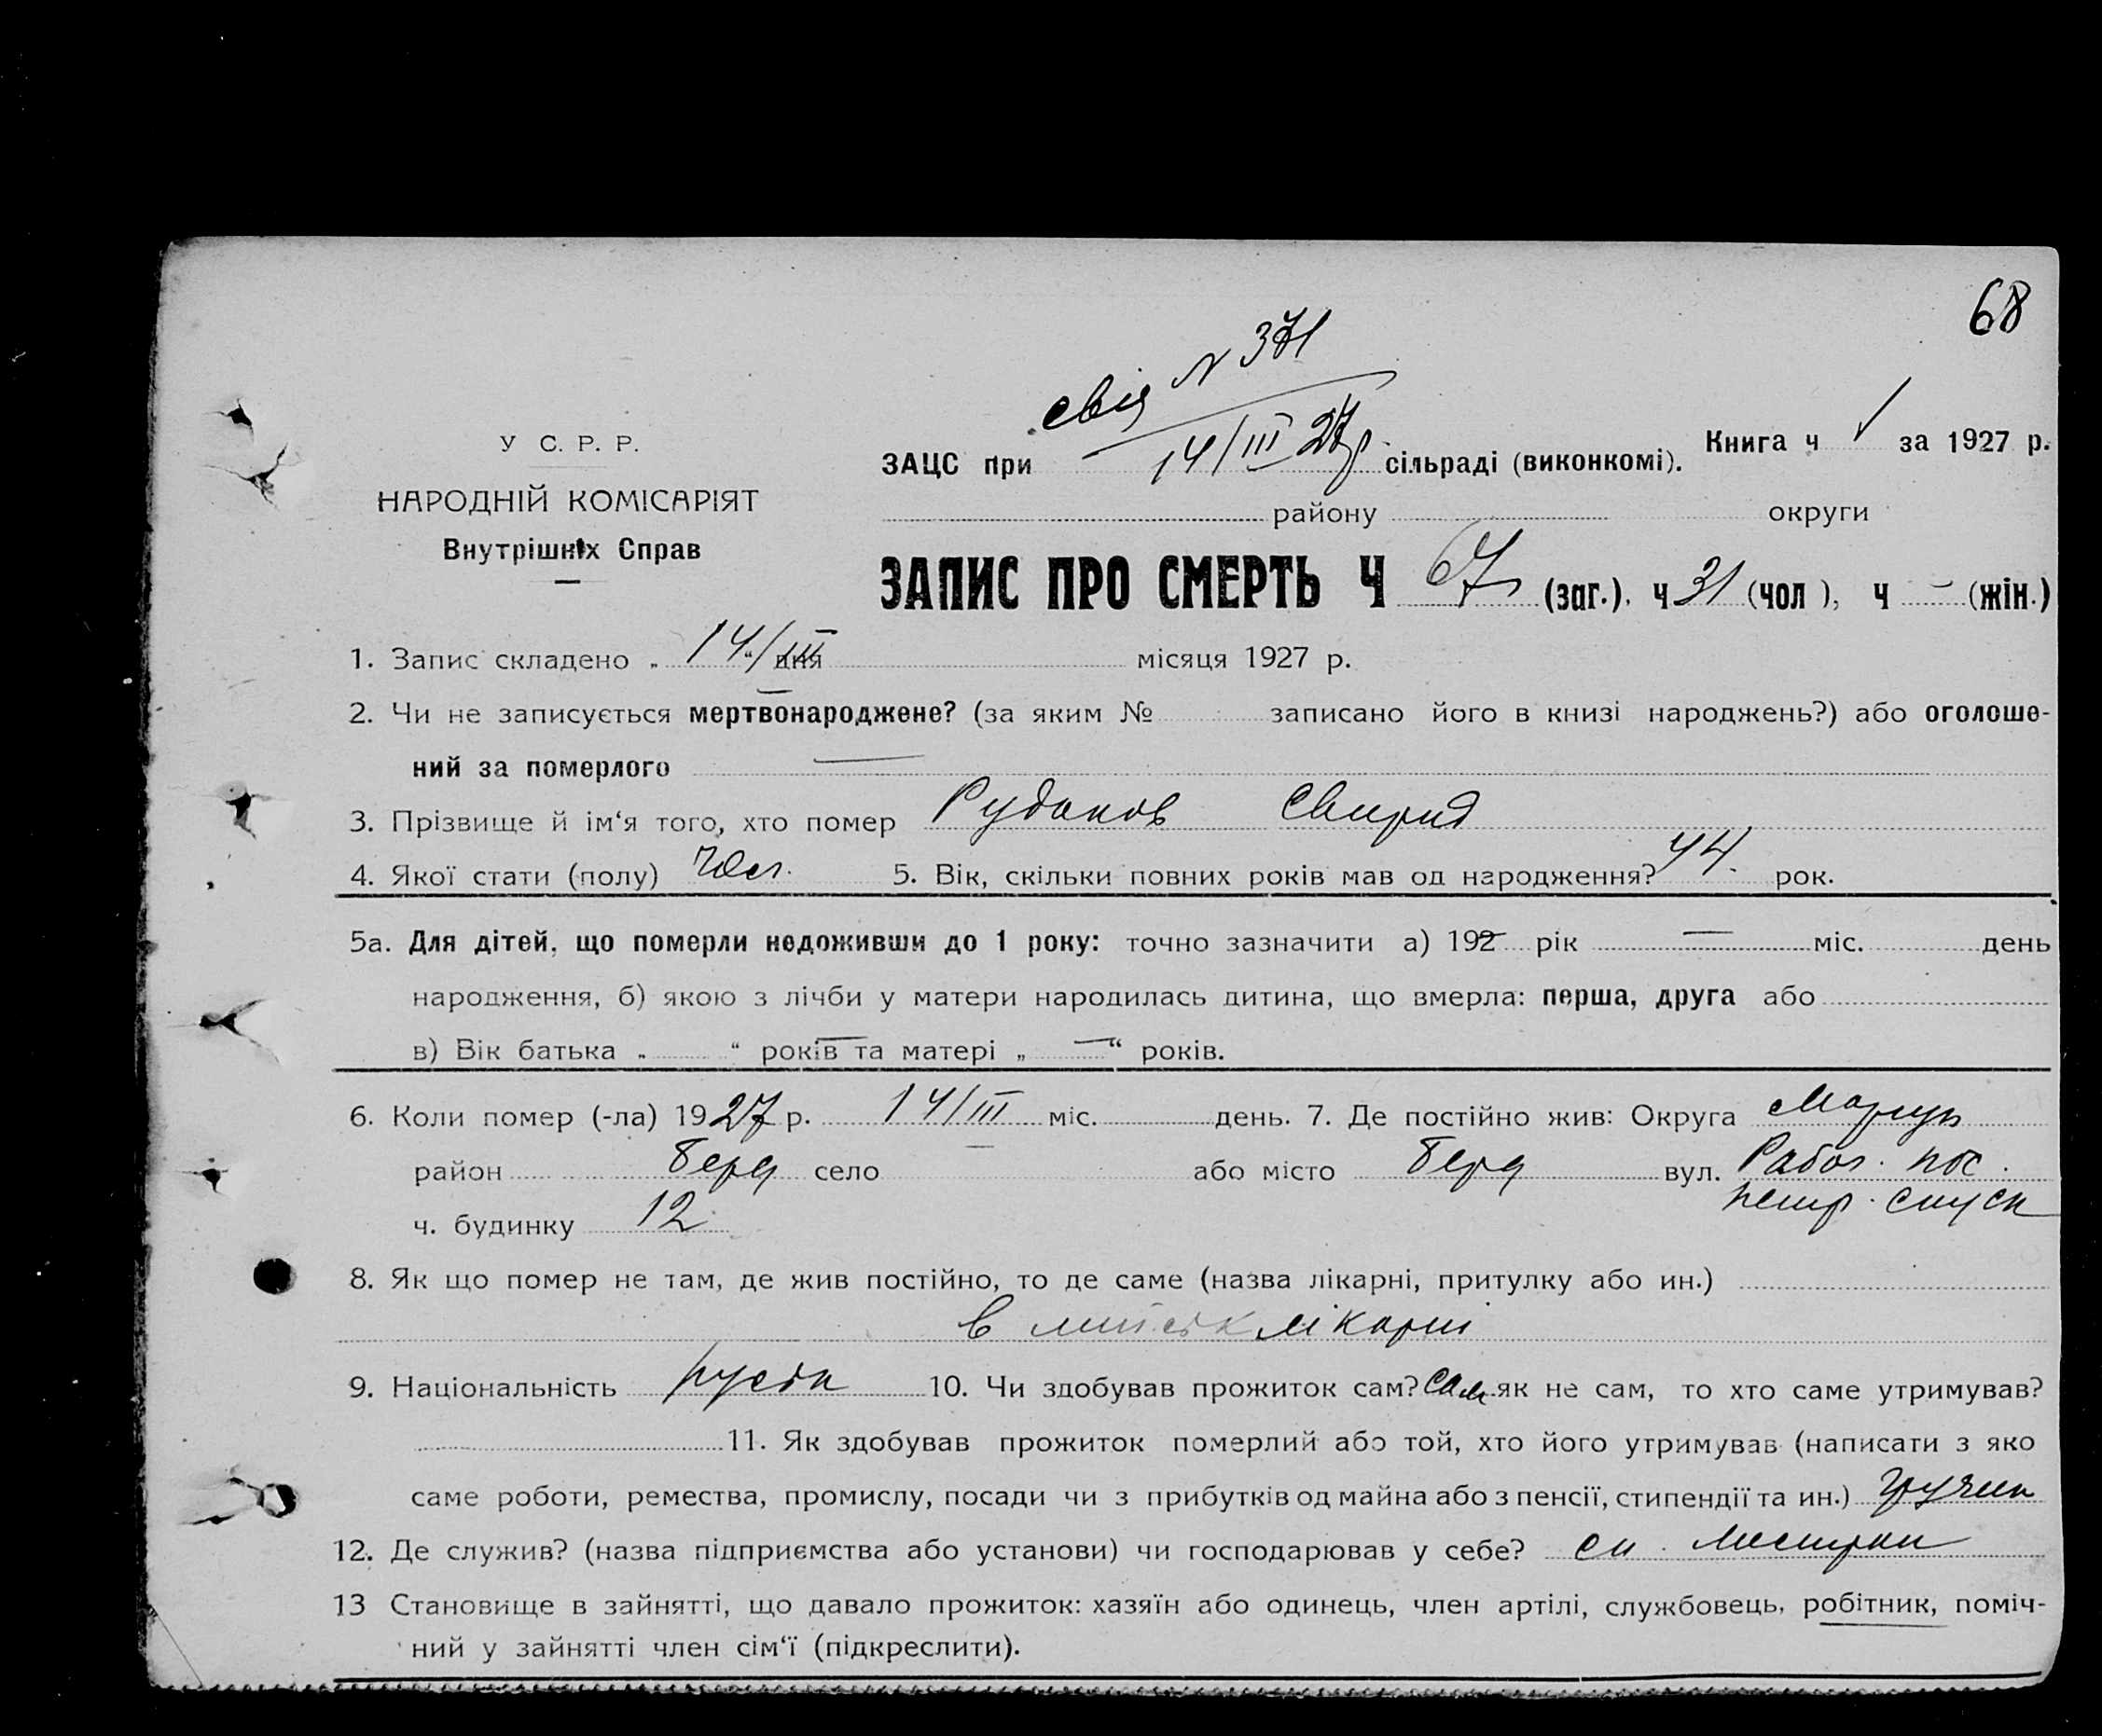 68
свід N 371
14/III 27р.
У С. Р. Р.
НАРОДНІЙ КОМІСАРІЯТ
Внутрішніх Справ
ЗАЦС при сільраді (виконкомі). Книга ч за 1927 р.
району округи
ЗАПИС ПРО СМЕРТЬ Ч 67 (заг.), ч 31 (чол ), ч – (жін.)
1. Запис складено „ 14/III “ дня місяця 1927 р.
2. Чи не записується мертвонароджене? (за яким № записано його в книзі народжень?) або оголоше-
ний за померлого —
3. Прізвище й ім‘я того, хто помер Рудаков Свирид
4. Якої стати (полу) Чол. 5. Вік, скільки повних років мав од народження? 44. рок.
5а. Для дітей, що померли недоживши до 1 року: точно зазначити а) 192 рік — міс. день
народження, б) якою з лічби у матери народилась дитина, що вмерла: перша, друга або
в) Вік батька „ “ років та матері „ — “ років.
6. Коли помер (-ла) 1927 р. 14/III міс. день. 7. Де постійно жив: Округа Маріуп
район Берд село — або місто Берд вул. Рабоч. пос.
ч. будинку 12 петр. спуск
8. Як що помер не там, де жив постійно, то де саме (назва лікарні, притулку або ин.)
в міськ лікарні
9. Національність руськ 10. Чи здобував прожиток сам? сам як не сам, то хто саме утримував?
11. Як здобував прожиток померлий або той, хто його утримував (написати з яко
саме роботи, ремества, промислу, посади чи з прибутків од майна або з пенсії, стипендії та ин.) грузчик
12. Де служив? (назва підприємства або установи) чи господарював у себе?
13 Становище в зайнятті, що давало прожиток: хазяїн або одинець, член артілі, службовець, робітник, поміч-
ний у зайнятті член сім‘ї (підкреслити).